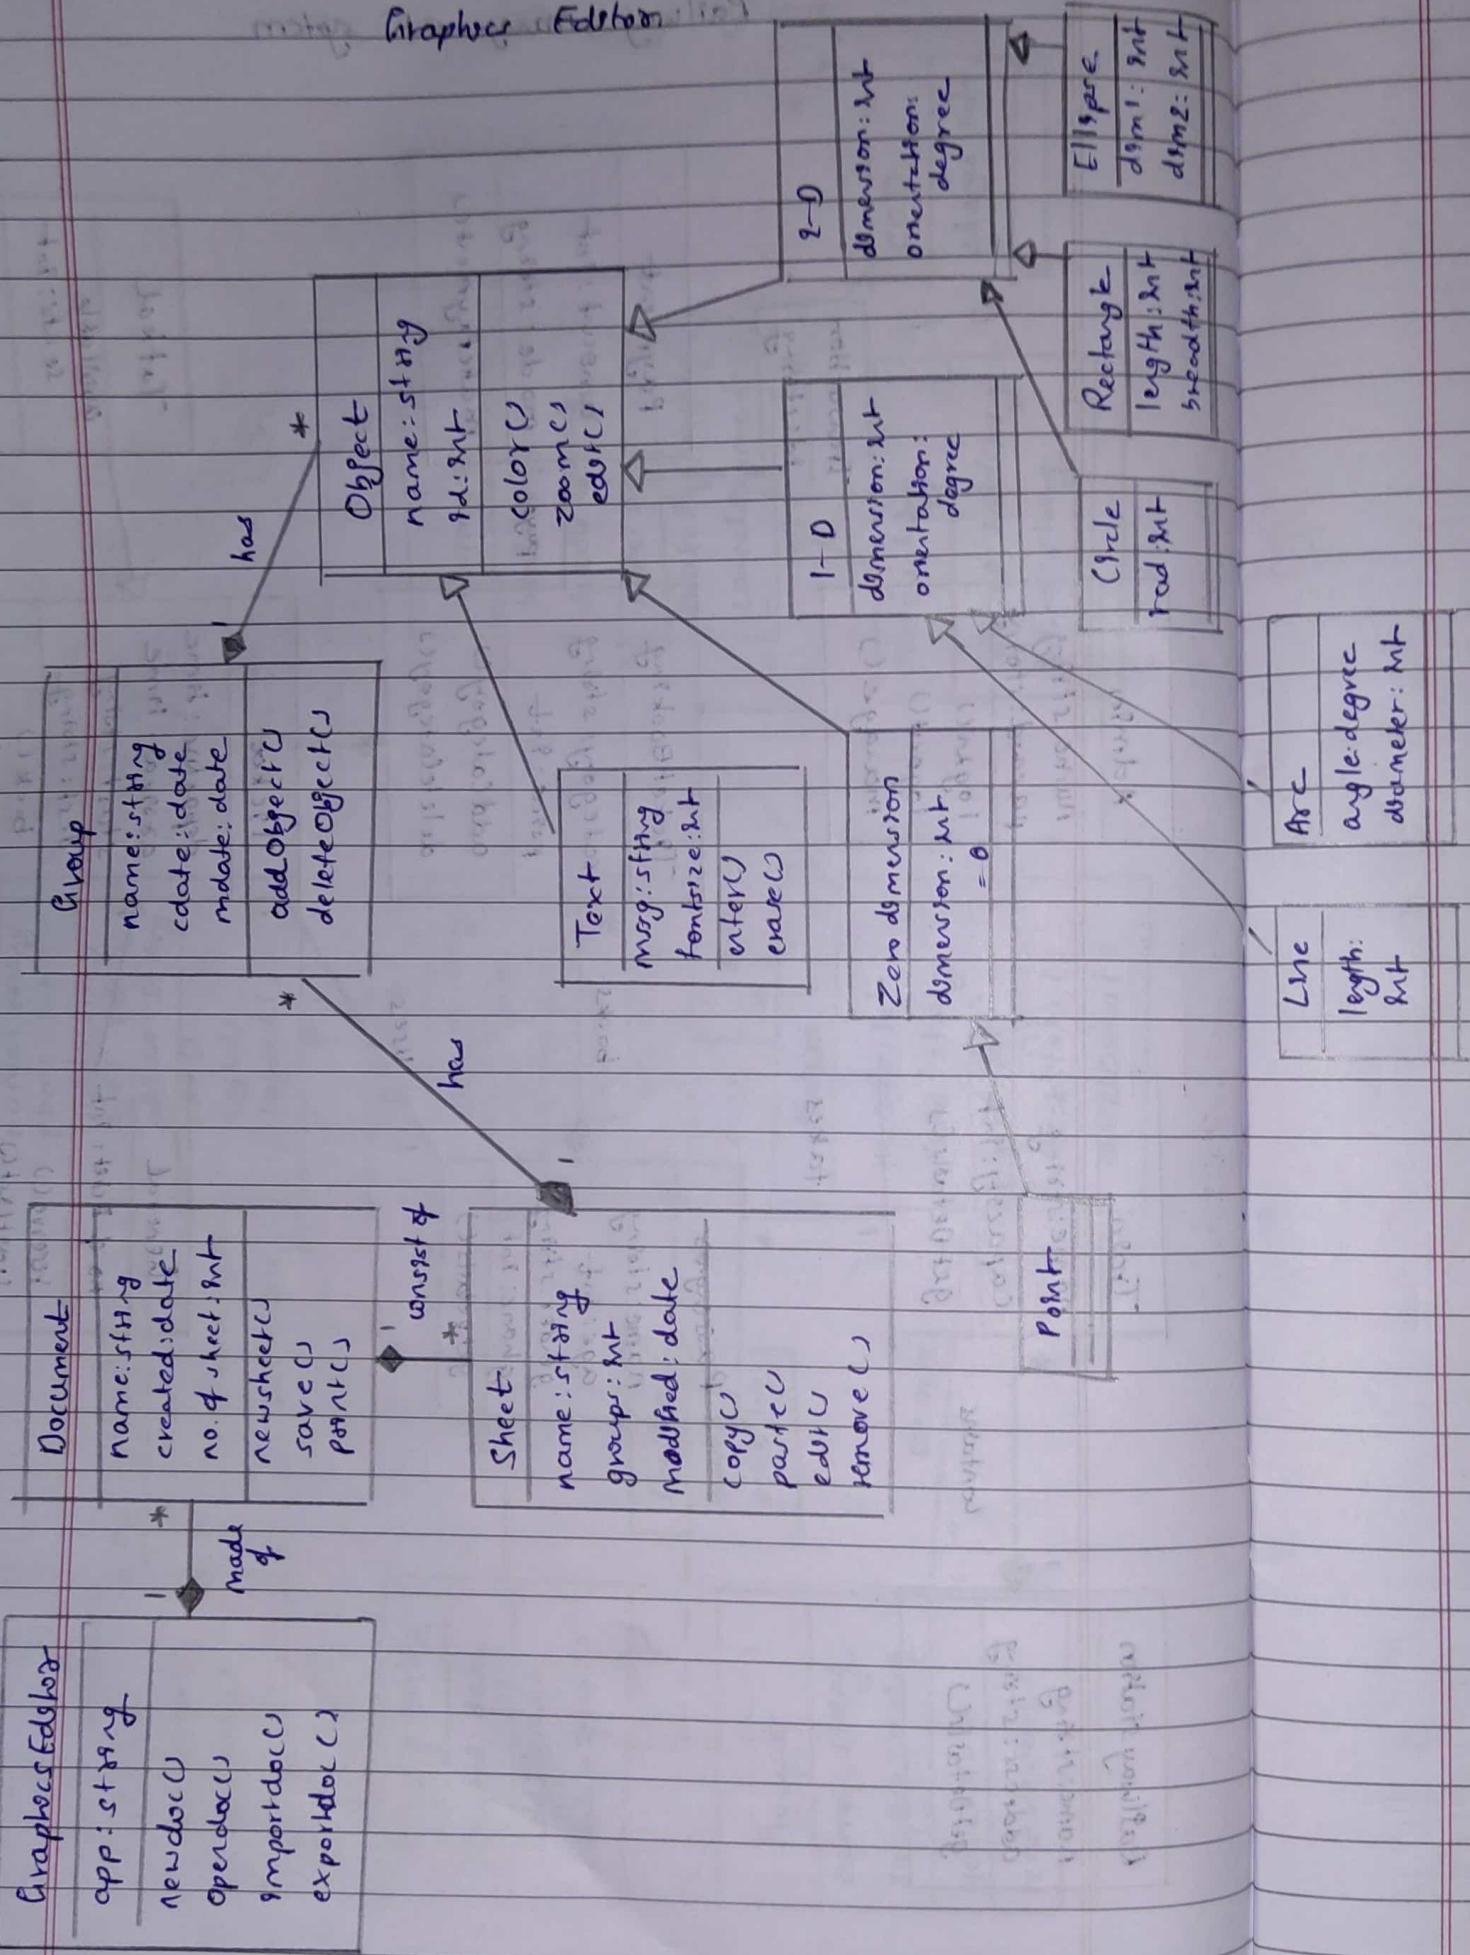 Graphics Editor
GraphicsEditor
app: string
newdoc()
opendoc()
importdoc()
exportdoc()
1
*
made
of
Document
name: string
created: date
no. of sheet: int
newsheet()
save()
print()
1
*
consist of
Sheet
name: string
groups: int
modified: date
copy()
paste()
edit()
remove()
1
*
has
Group
name: string
cdate: date
mdate: date
addObject()
deleteObject()
1
*
has
Object
name: string
id: int
color()
zoom()
edit()
Text
msg: string
fontsize: int
enter()
erase()
Zero dimension
dimension: int
= 0
Point
1-D
dimension: int
orientation:
degree
2-D
dimension: int
orientation:
degree
Line
length:
int
Arc
angle: degree
diameter: int
Circle
rad: int
Rectangle
length: int
breadth: int
Ellipse
dim1: int
dim2: int